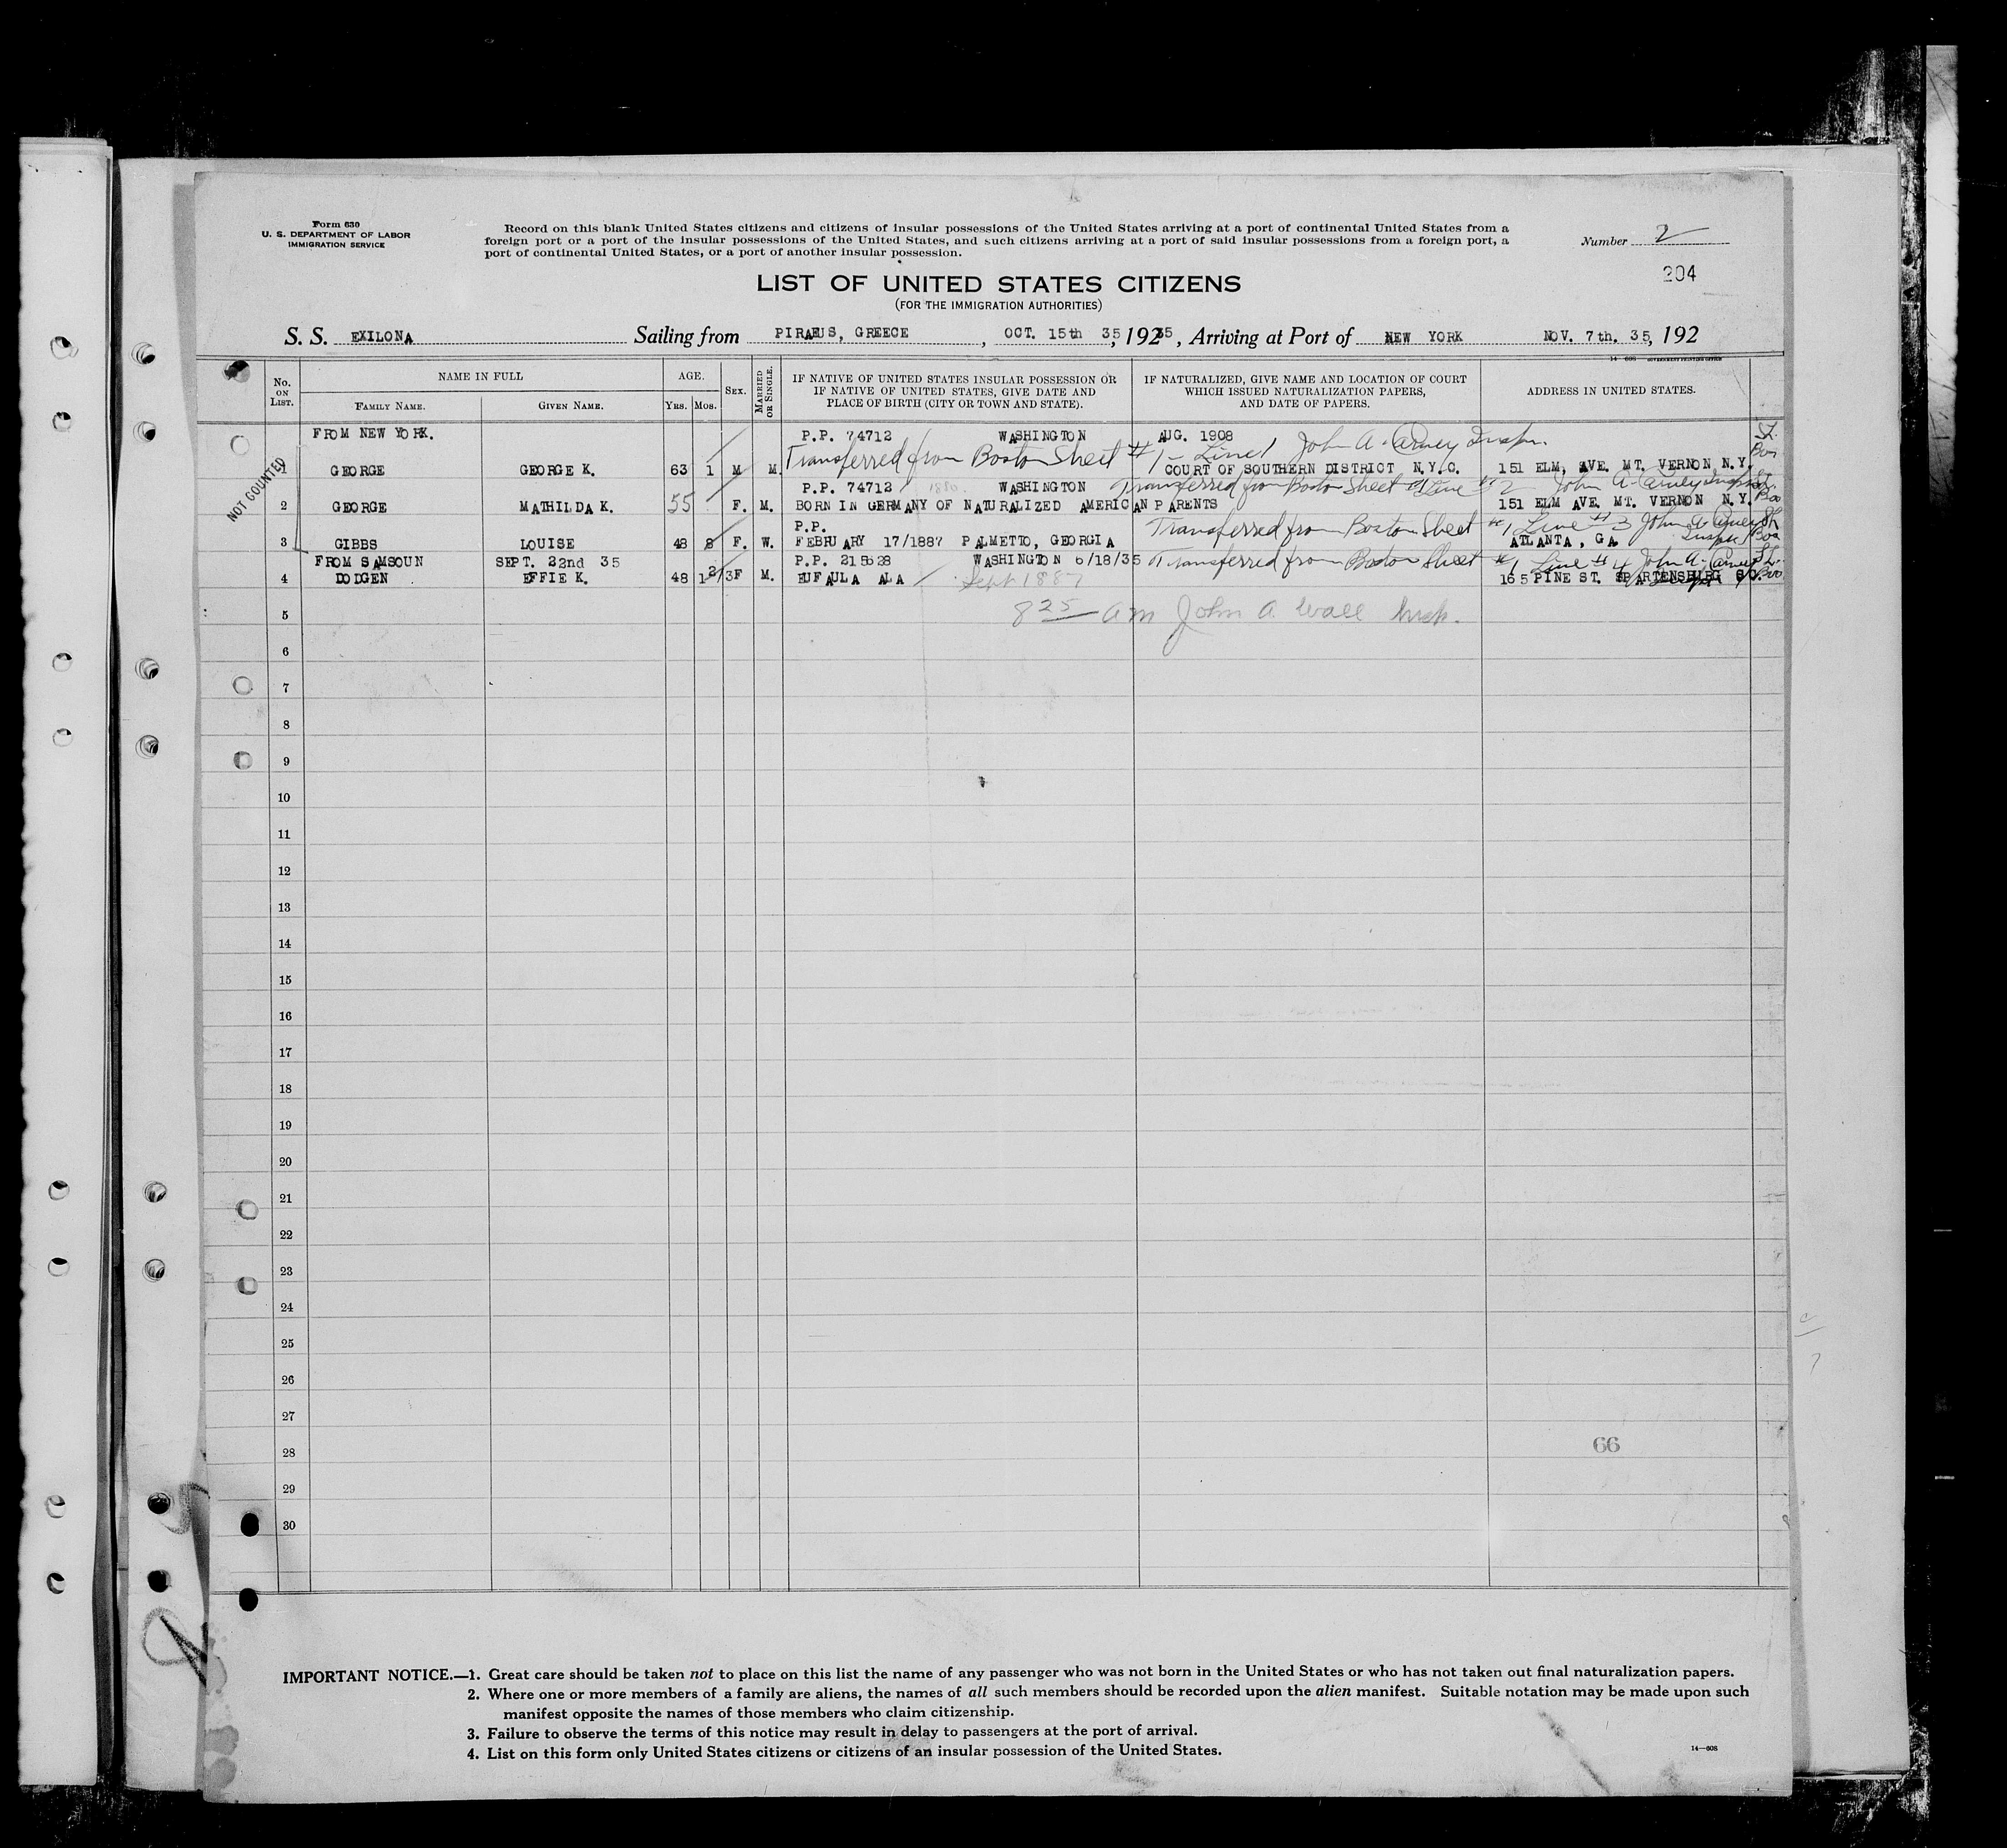 Form 630
U. S. DEPARTMENT OF LABOR
IMMIGRATION SERVICE
Record on this blank United States citizens and citizens of insular possessions of the United States arriving at a port of continental United States from a
foreign port or a port of the insular possessions of the United States, and such citizens arriving at a port of said insular possessions from a foreign port, a
port of continental United States, or a port of another insular possession.
Number 2
204
LIST OF UNITED STATES CITIZENS
(FOR THE IMMIGRATION AUTHORITIES)
S. S. EXILONA Sailing from PIRAEUS, GREECE, OCT. 15th 35, 19235, Arriving at Port of NEW YORK NOV. 7th. 35, 192
No. ON LIST. NAME IN FULL AGE. SEX. MARRIED OR SINGLE. IF NATIVE OF UNITED STATES INSULAR POSSESSION OR IF NATIVE OF UNITED STATES, GIVE DATE AND PLACE OF BIRTH (CITY OR TOWN AND STATE). IF NATURALIZED, GIVE NAME AND LOCATION OF COURT WHICH ISSUED NATURALIZATION PAPERS, AND DATE OF PAPERS. ADDRESS IN UNITED STATES.
FAMILY NAME. GIVEN NAME. YRS. MOS.
NOT COUNTED
FROM NEW YORK. P.P. 74712 WASHINGTON AUG. 1908
Transferred from Boston Sheet #1 - Line 1 John A. Carney Inspr.
1 GEORGE GEORGE K. 63 1 M M. COURT OF SOUTHERN DISTRICT N.Y.C. 151 ELM, AVE. MT. VERNON N.Y.
P.P. 74712 1880 WASHINGTON Transferred from Boston Sheet #1 Line #2 John A. Carney Inspr
2 GEORGE MATHILDA K. 55 F. M. BORN IN GERMANY OF NATURALIZED AMERICAN PARENTS 151 ELM AVE. MT. VERNON N.Y.
P.P. Transferred from Boston Sheet #1 Line #3 John A Carney Inspr
3 GIBBS LOUISE 48 8 F. W. FEBRUARY 17/1887 PALMETTO, GEORGIA ATLANTA, GA
FROM SAMSOUN SEPT. 22nd 35 P.P. 215828 WASHINGTON 6/18/35 Transferred from Boston Sheet #1 Line #4 John A. Carney
4 DODGEN EFFIE K. 48 1 2/3 F M. EUFAULA ALA Sept 1887 165 PINE ST. SPARTENSBURG SC.
5 8 25 am John A. Wall Insp.
6
7
8
9
10
11
12
13
14
15
16
17
18
19
20
21
22
23
24
25
26
27
28 66
29
30
IMPORTANT NOTICE.—1. Great care should be taken not to place on this list the name of any passenger who was not born in the United States or who has not taken out final naturalization papers.
2. Where one or more members of a family are aliens, the names of all such members should be recorded upon the alien manifest. Suitable notation may be made upon such
manifest opposite the names of those members who claim citizenship.
3. Failure to observe the terms of this notice may result in delay to passengers at the port of arrival.
4. List on this form only United States citizens or citizens of an insular possession of the United States.
14—608